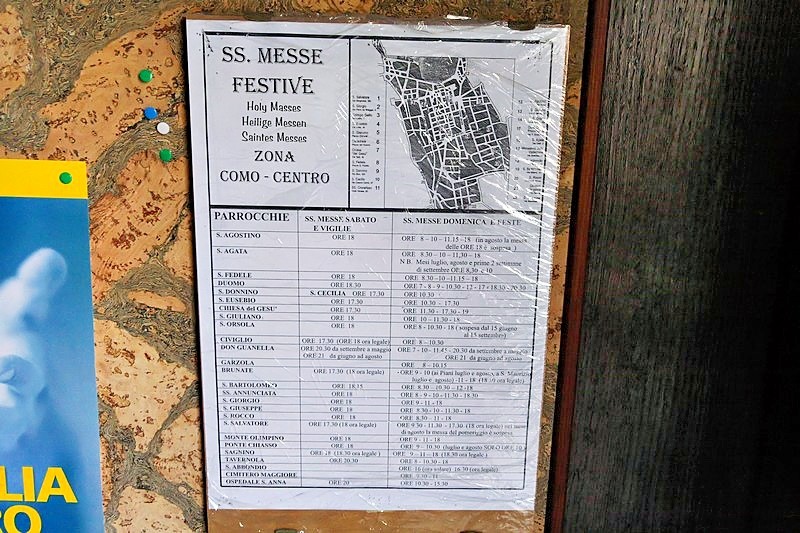 SS. MESSE
FESTIVE
Holy Masses
Heilige Messen
Saintes Messes
ZONA
COMO - CENTRO
PARROCCHIE SS. MESSE SABATO E VIGILIE SS. MESSE DOMENICA E FESTE
S. AGOSTINO ORE 18 ORE 8 - 10 - 11.15 - 18 (in agosto la messa
delle ORE 18 è sospesa)
S. AGATA ORE 18 ORE 8.30 - 10 - 11.30 - 18
N.B. Mesi luglio, agosto e prime 2 settimane
di settembre ORE 8.30 e 10
S. FEDELE ORE 18 ORE 8.30 - 10 - 11.15 - 18
DUOMO ORE 18.30 ORE 7 - 8 - 9 - 10.30 - 12 - 17 - 18.30 - 20.30
S. DONNINO S. CECILIA ORE 17.30 ORE 10.30
S. EUSEBIO ORE 17.30 ORE 10.30 - 17.30
CHIESA del GESU' ORE 17.30 ORE 11.30 - 17.30 - 19
S. GIULIANO ORE 18 ORE 10 - 11.30 - 18
S. ORSOLA ORE 18 ORE 8 - 10.30 - 18 (sospesa dal 15 giugno
al 15 settembre)
CIVIGLIO ORE 17.30 (ORE 18 ora legale) ORE 8 - 10.30
DON GUANELLA ORE 20.30 da settembre a maggio ORE 7 - 10 - 11.45 - 20.30 da settembre a maggio
ORE 21 da giugno ad agosto ORE 21 da giugno ad agosto
GARZOLA ORE 8 - 10.15
BRUNATE ORE 17.30 (18 ora legale) ORE 9 - 10 (ai Piani luglio e agosto, a S. Maurizio
luglio e agosto) - 11 - 18 (18.30 ora legale)
S. BARTOLOMEO ORE 18.15 ORE 8.30 - 10.30 - 12 - 18
SS. ANNUNCIATA ORE 18 ORE 8 - 9 - 10 - 11.30 - 18.30
S. GIORGIO ORE 18 ORE 9 - 11 - 18
S. GIUSEPPE ORE 18 ORE 8.30 - 10 - 11.30 - 18
S. ROCCO ORE 18 ORE 8.30 - 11 - 18
S. SALVATORE ORE 17.30 (18 ora legale) ORE 9.30 - 11.30 - 17.30 (18 ora legale) nel mese
di agosto la messa del pomeriggio è sospesa
MONTE OLIMPINO ORE 18 ORE 9 - 11 - 18
PONTE CHIASSO ORE 18 ORE 9 - 10.30 (luglio e agosto SOLO ORE
SAGNINO ORE 18 (18.30 ora legale) ORE 9 - 11 - 18 (18.30 ora legale)
TAVERNOLA ORE 20.30 ORE 8 - 10.30 - 18
S. ABBONDIO ORE 16 (ora solare) 16.30 (ora legale)
CIMITERO MAGGIORE ORE 9.30 - 11
OSPEDALE S. ANNA ORE 20 ORE 10.30 - 15.30
LIA
RO